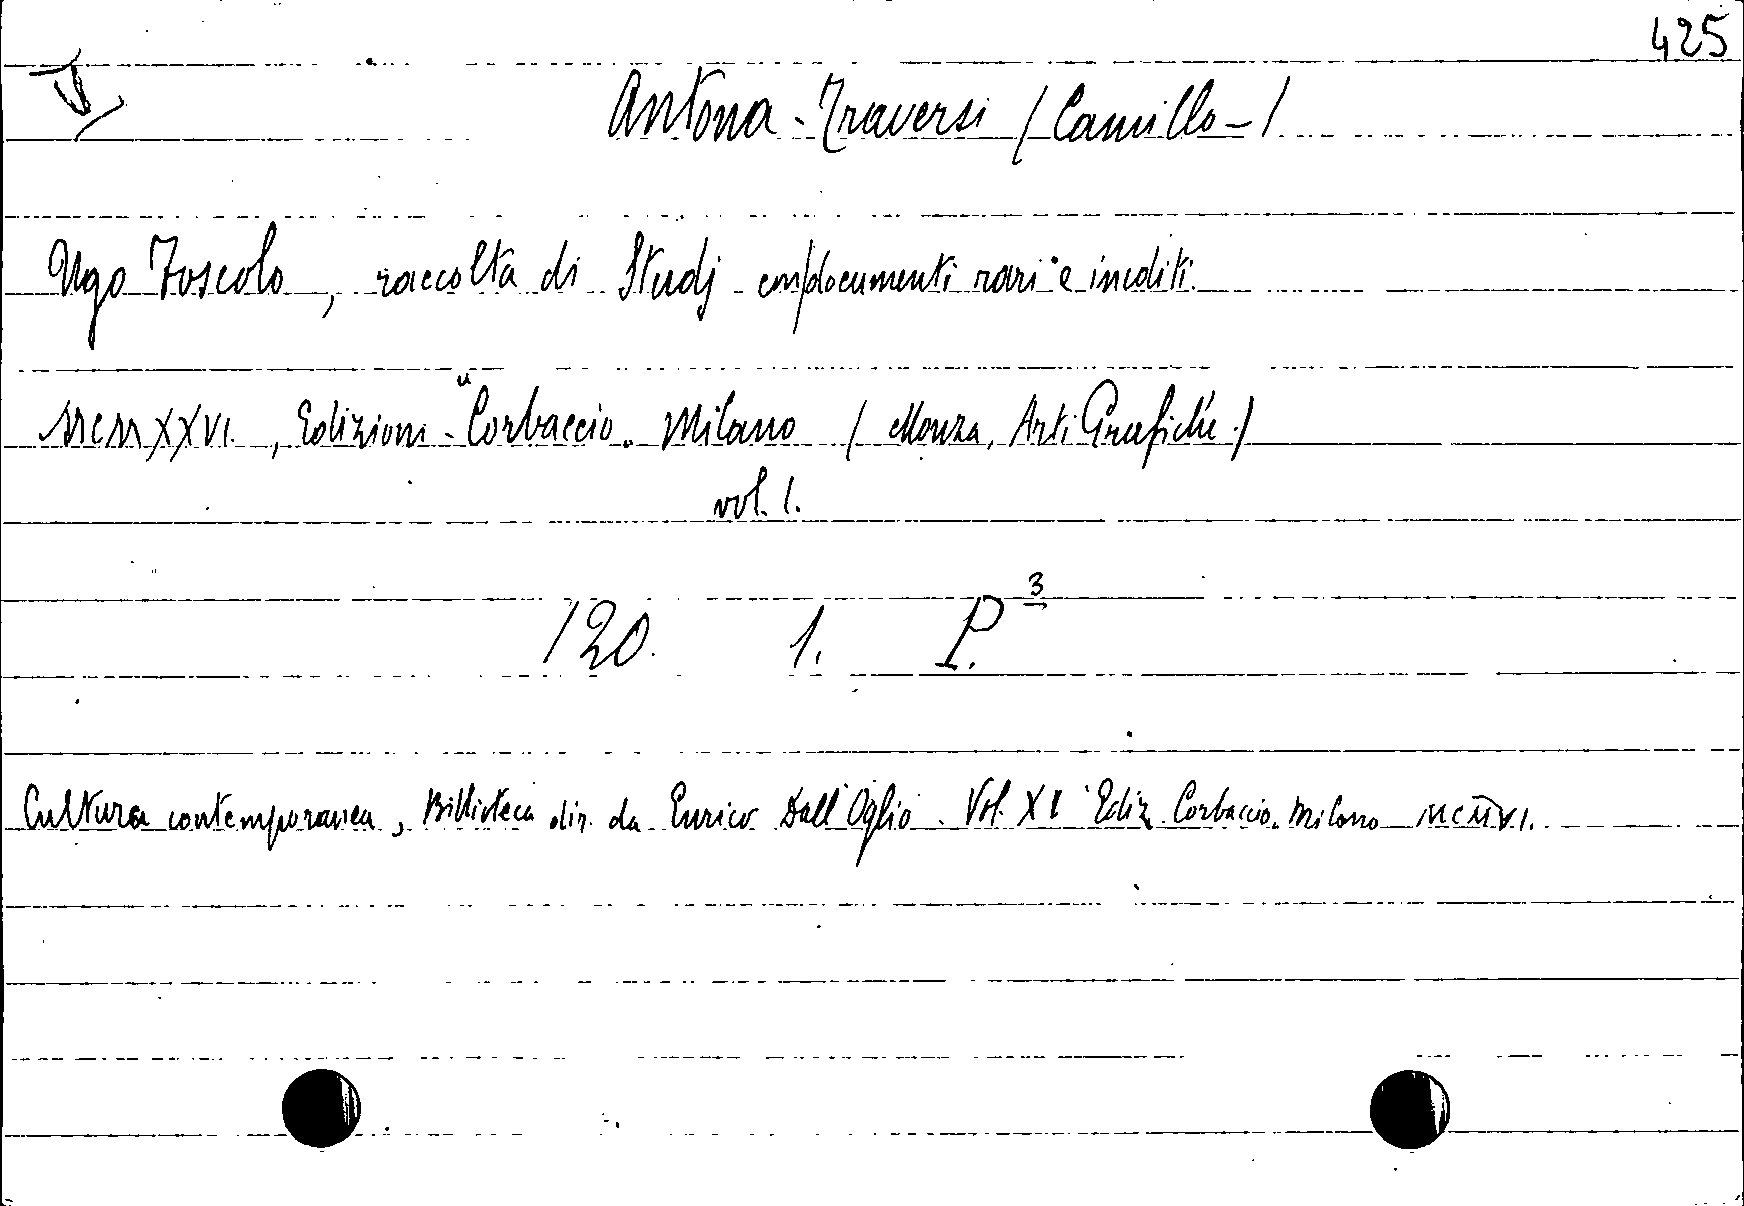 425
V
Antona-Traversi (Camillo-)
Ugo Foscolo, raccolta di Studj con documenti rari e inediti.
MCMXXVI., Edizioni "Corbaccio. Milano (Monza, Arti Grafiche.)
vol. 1.
120. 1. P.3
Cultura contemporanea, Biblioteca dir. da Enrico Dall'Oglio. Vol. XI Ediz. Corbaccio. Milano